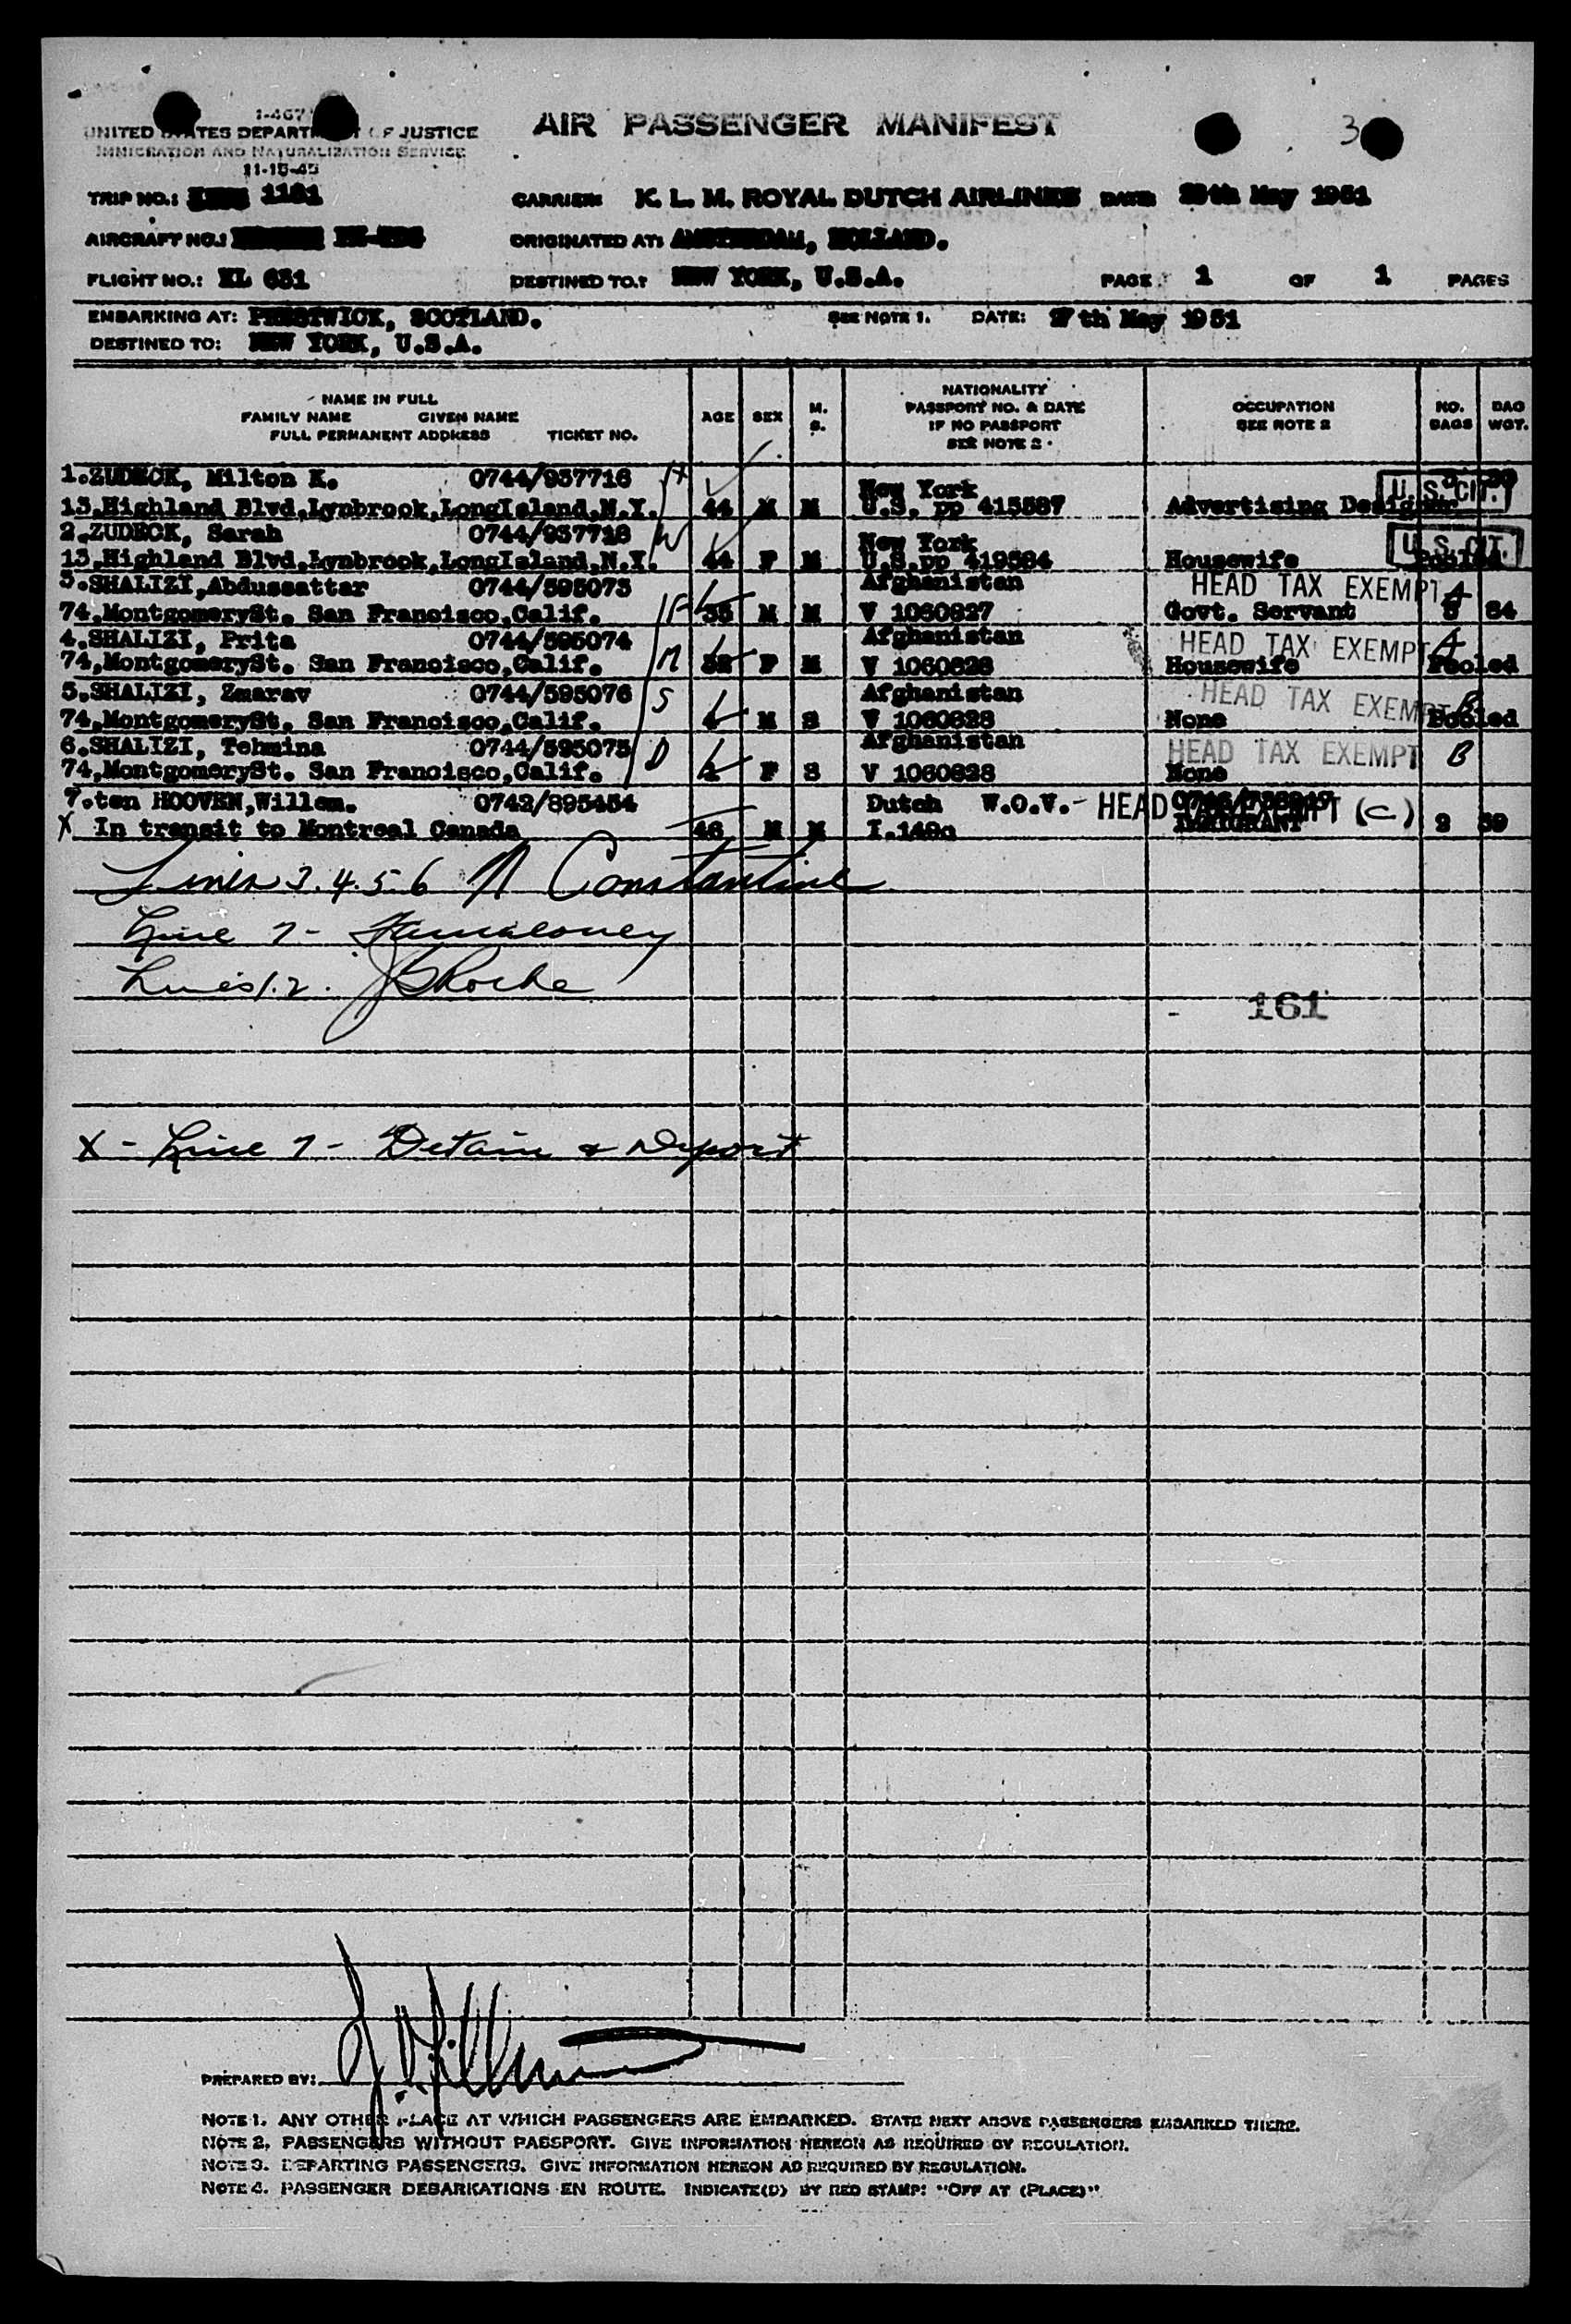 1-467
AIR PASSENGER MANIFEST
3
UNITED STATES DEPARTMENT OF JUSTICE
IMMIGRATION AND NATURALIZATION SERVICE
11-15-45
TRIP NO.: 1181
CARRIER: K. L. M. ROYAL DUTCH AIRLINES DATE: May 1951
AIRCRAFT NO.:
ORIGINATED AT: AMSTERDAM, HOLLAND.
FLIGHT NO.: KL 631
DESTINED TO.: NEW YORK, U.S.A. PAGE 1 OF 1 PAGES
EMBARKING AT: PRESTWICK, SCOTLAND. SEE NOTE 1. DATE: 17th May 1951
DESTINED TO: NEW YORK, U.S.A.
NAME IN FULL
FAMILY NAME GIVEN NAME
FULL PERMANENT ADDRESS TICKET NO.
AGE
SEX
M.
S.
NATIONALITY
PASSPORT NO. & DATE
IF NO PASSPORT
SEE NOTE 2
OCCUPATION
SEE NOTE 2
NO.
BAGS
BAG
WGT.
1.ZUDECK, Milton K. 0744/937716 H New York
13,Highland Blvd,Lynbrook,LongIsland,N.Y. 44 M M U.S. pp 415587 Advertising Designer U.S. CIT.
2.ZUDECK, Sarah 0744/937718 W New York
13,Highland Blvd,Lynbrook,LongIsland,N.Y. 44 F M U.S.pp 419584 Housewife Pooled U.S. CIT.
3.SHALIZI,Abdussattar 0744/595073 Afghanistan HEAD TAX EXEMPT A
74,MontgomerySt. San Francisco,Calif. 35 M M V 1060827 Govt. Servant 84
4.SHALIZI, Prita 0744/595074 Afghanistan HEAD TAX EXEMPT A
74,MontgomerySt. San Francisco,Calif. M 32 F M V 1060828 Housewife Pooled
5.SHALIZI, Zmarav 0744/595076 S Afghanistan HEAD TAX EXEMPT B
74,MontgomerySt. San Francisco,Calif. M S V 1060828 None Pooled
6.SHALIZI, Tehmina 0744/595075 D Afghanistan HEAD TAX EXEMPT B
74,MontgomerySt. San Francisco,Calif. F S V 1060828 None
7.ten HOOVEN,Willem. 0742/895454 Dutch W.O.V.- HEAD TAX EXEMPT (C)
X In transit to Montreal Canada 46 M M I.149q IMMIGRANT 2 59
Lines 3.4.5.6 N Constantine
Line 7 - Famaloney
Lines 1.2. JBRoche
161
X - Line 7 - Detain & Deport
PREPARED BY:
NOTE 1. ANY OTHER PLACE AT WHICH PASSENGERS ARE EMBARKED. STATE NEXT ABOVE PASSENGERS EMBARKED THERE.
NOTE 2. PASSENGERS WITHOUT PASSPORT. GIVE INFORMATION HEREON AS REQUIRED BY REGULATION.
NOTE 3. DEPARTING PASSENGERS. GIVE INFORMATION HEREON AS REQUIRED BY REGULATION.
NOTE 4. PASSENGER DEBARKATIONS EN ROUTE. INDICATE(D) BY RED STAMP: "OFF AT (PLACE)"